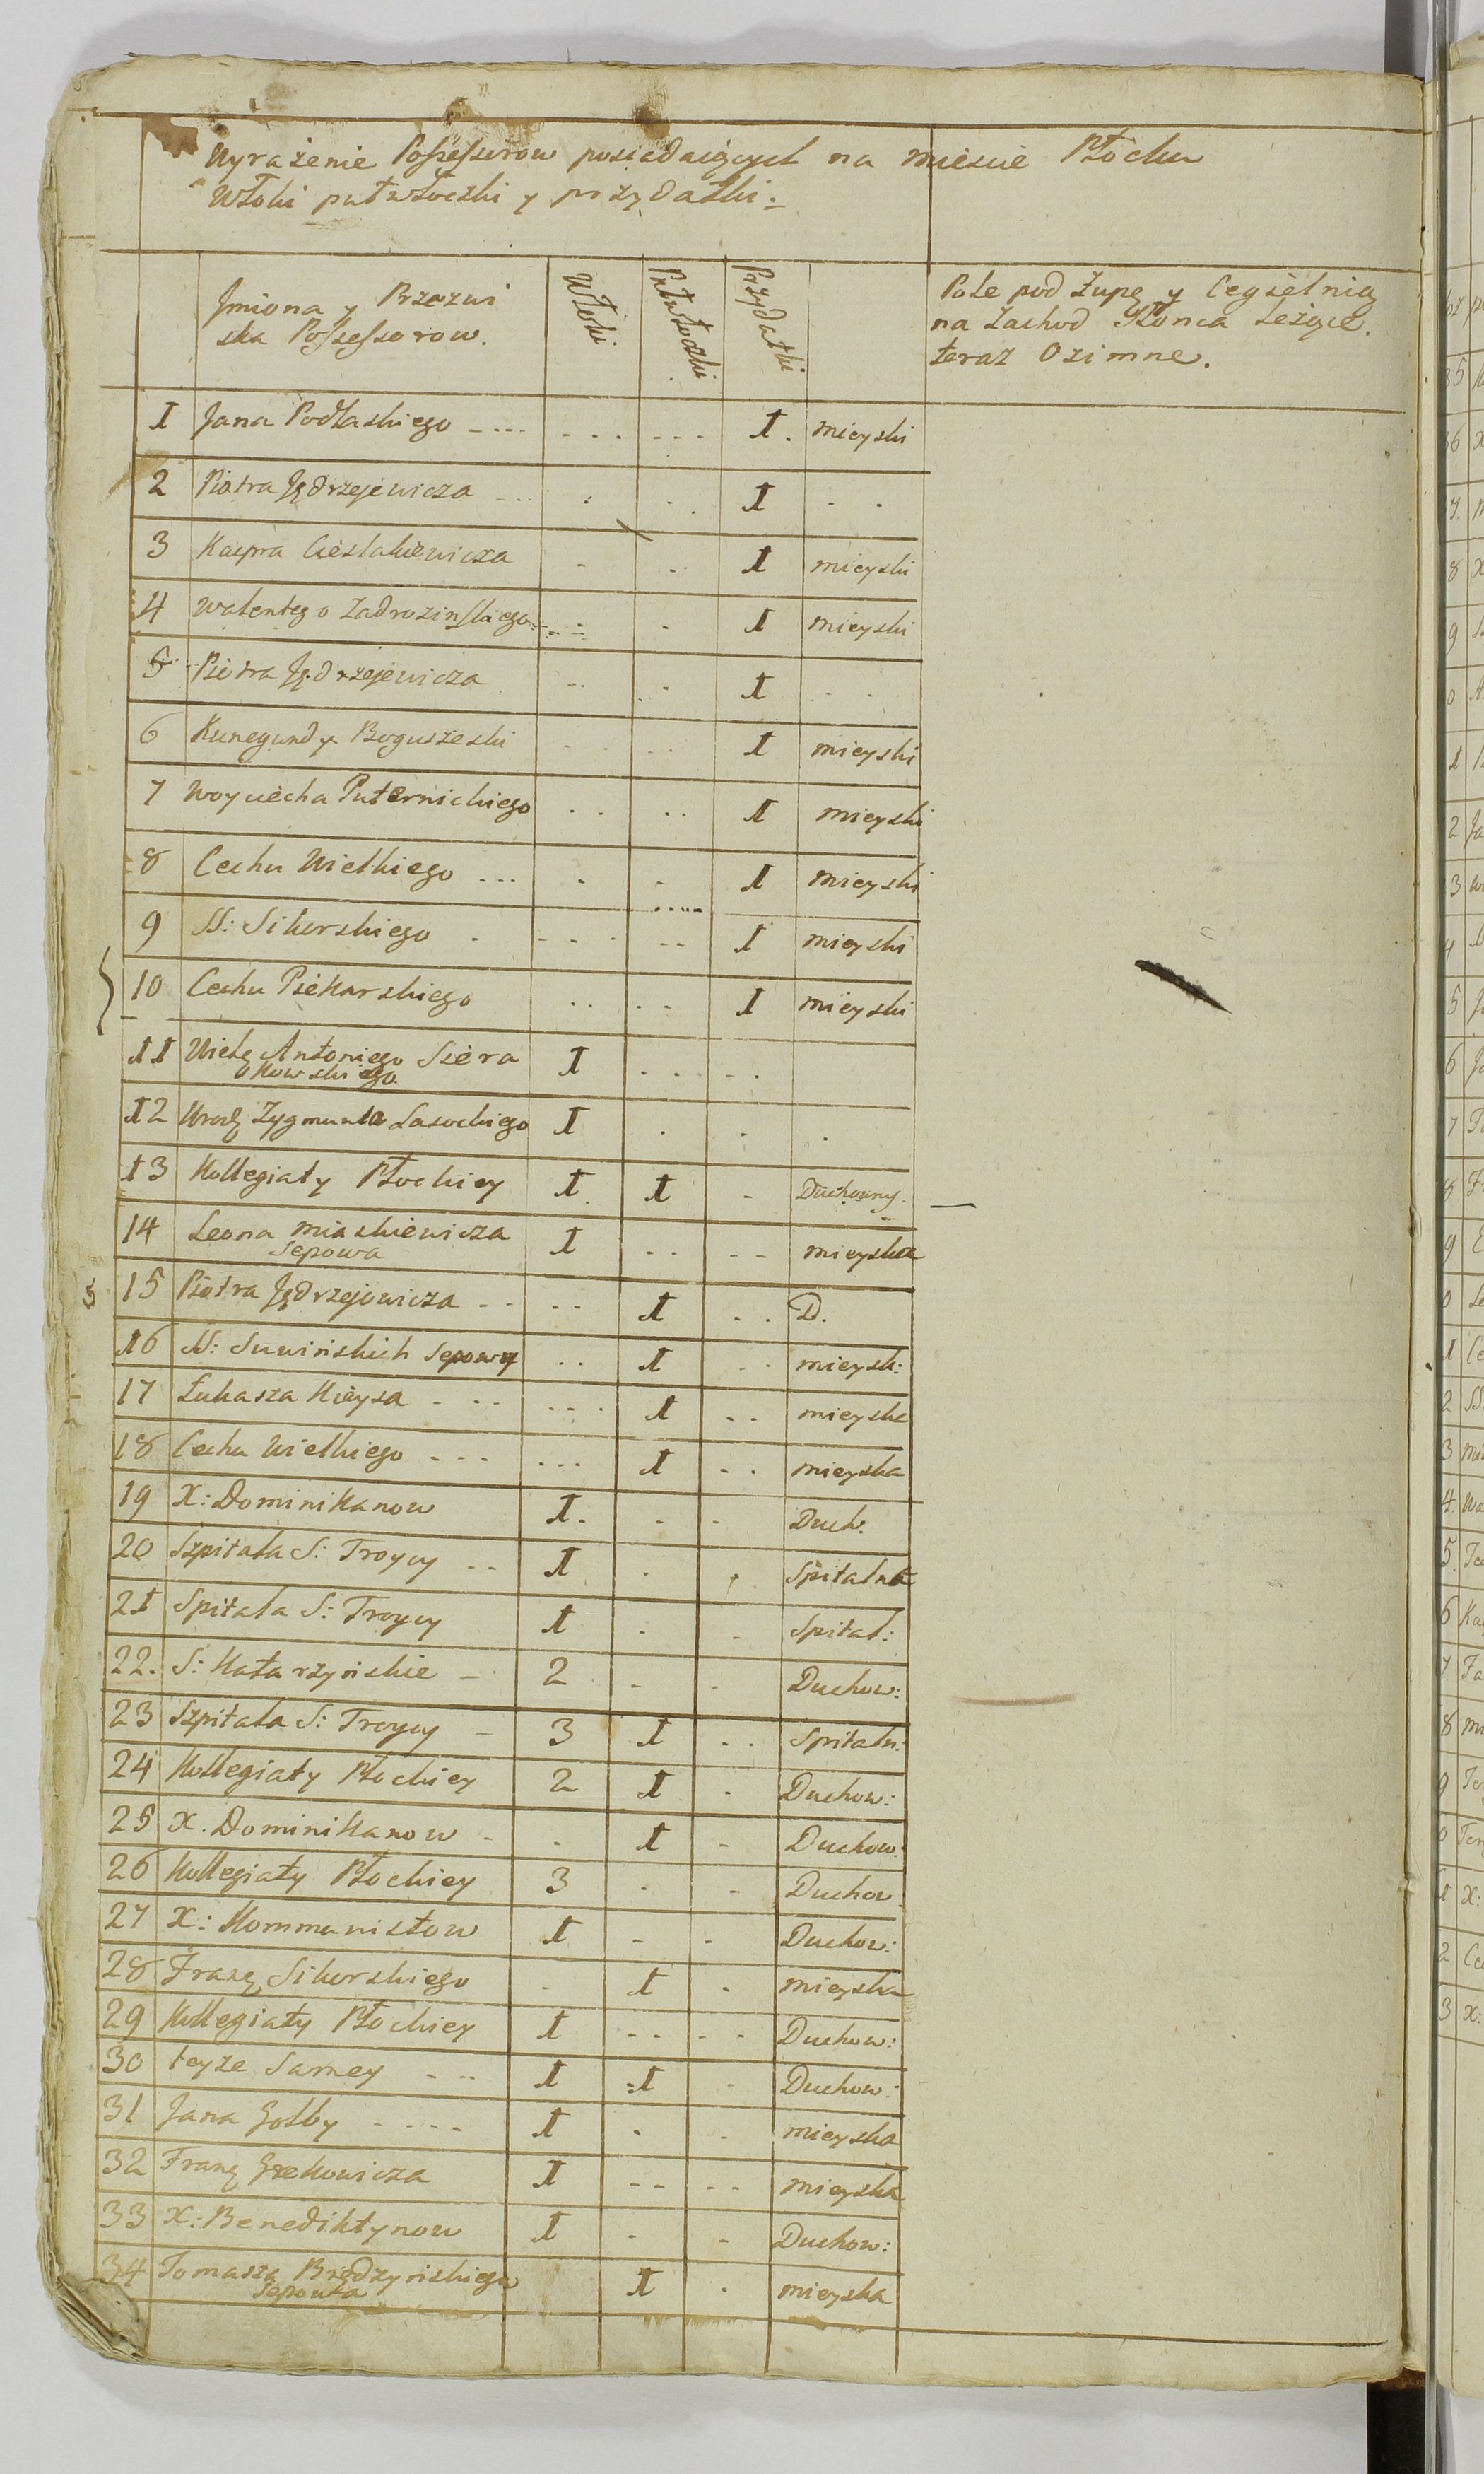 Wyrażenie Possessorow posiadaiących na miescie Płocku
Włoki putwłoczki y przydatki.
Jmiona y Przezwi
ska Possessorow.
Włoki
Putwłoczki
Przydatki
Pole pod Łupę y Cegielnią
na Zachod Słonca Leżące.
teraz Ozimne.
1 Jana Podlaskiego - ... ... ... 1. mieyski
2 Piotra Jędrzejewicza 1
3 Kacpra Cieslakiewicza 1 mieyski
4 Walentego Zadrozinskiego 1 mieyski
5 Piotra Jędrzejewicza 1
6 Kunegundy Boguszeski 1 mieyski
7 Woyciecha Puternickiego 1 mieyski
8 Cechu Wielkiego ... 1 mieyski
9 SS: Sikorskiego 1 mieyski
10 Cechu Piekarskiego 1 mieyski
11 Wielę Antoniego Siera 1
kowskiego
12 Urodz Zygmunta Lasockiego 1
13 Kollegiaty Płockiey 1 1 Duchowny.
14 Leona Miaskiewicza 1 mieyska
Sepowa
15 Piotra Jędrzejowicza 1 D.
16 SS: Suwińskich Sepowy 1 mieysk:
17 Łukasza Kieysa 1 mieyska
18 Cechu Wielkiego 1 mieyska
19 X: Dominikanow 1. Duch.
20 Szpitala S: Troycy 1 Spitalna
21 Spitala S: Troycy 1 Spital:
22. S: Katarzyńskie 2 Duchow:
23 Szpitala S: Troycy 3 1 Spitaln:
24 Kollegiaty Płockiey 2 1 Duchow:
25 X. Dominikanow 1 Duchow:
26 Kollegiaty Płockiey 3 Duchow
27 X: Kommunistow 1 Duchow:
28 Franę Sikorskiego 1 mieyska
29 Kollegiaty Płockiey 1 Duchow:
30 teyze Samey 1 1 Duchow:
31 Jana Golby 1 mieyska
32 Franę Grekowicza 1 mieyska
33 X: Benediktynow 1 Duchow:
34 Tomasza Brodzyńskiego 1 mieyska
Sepowka